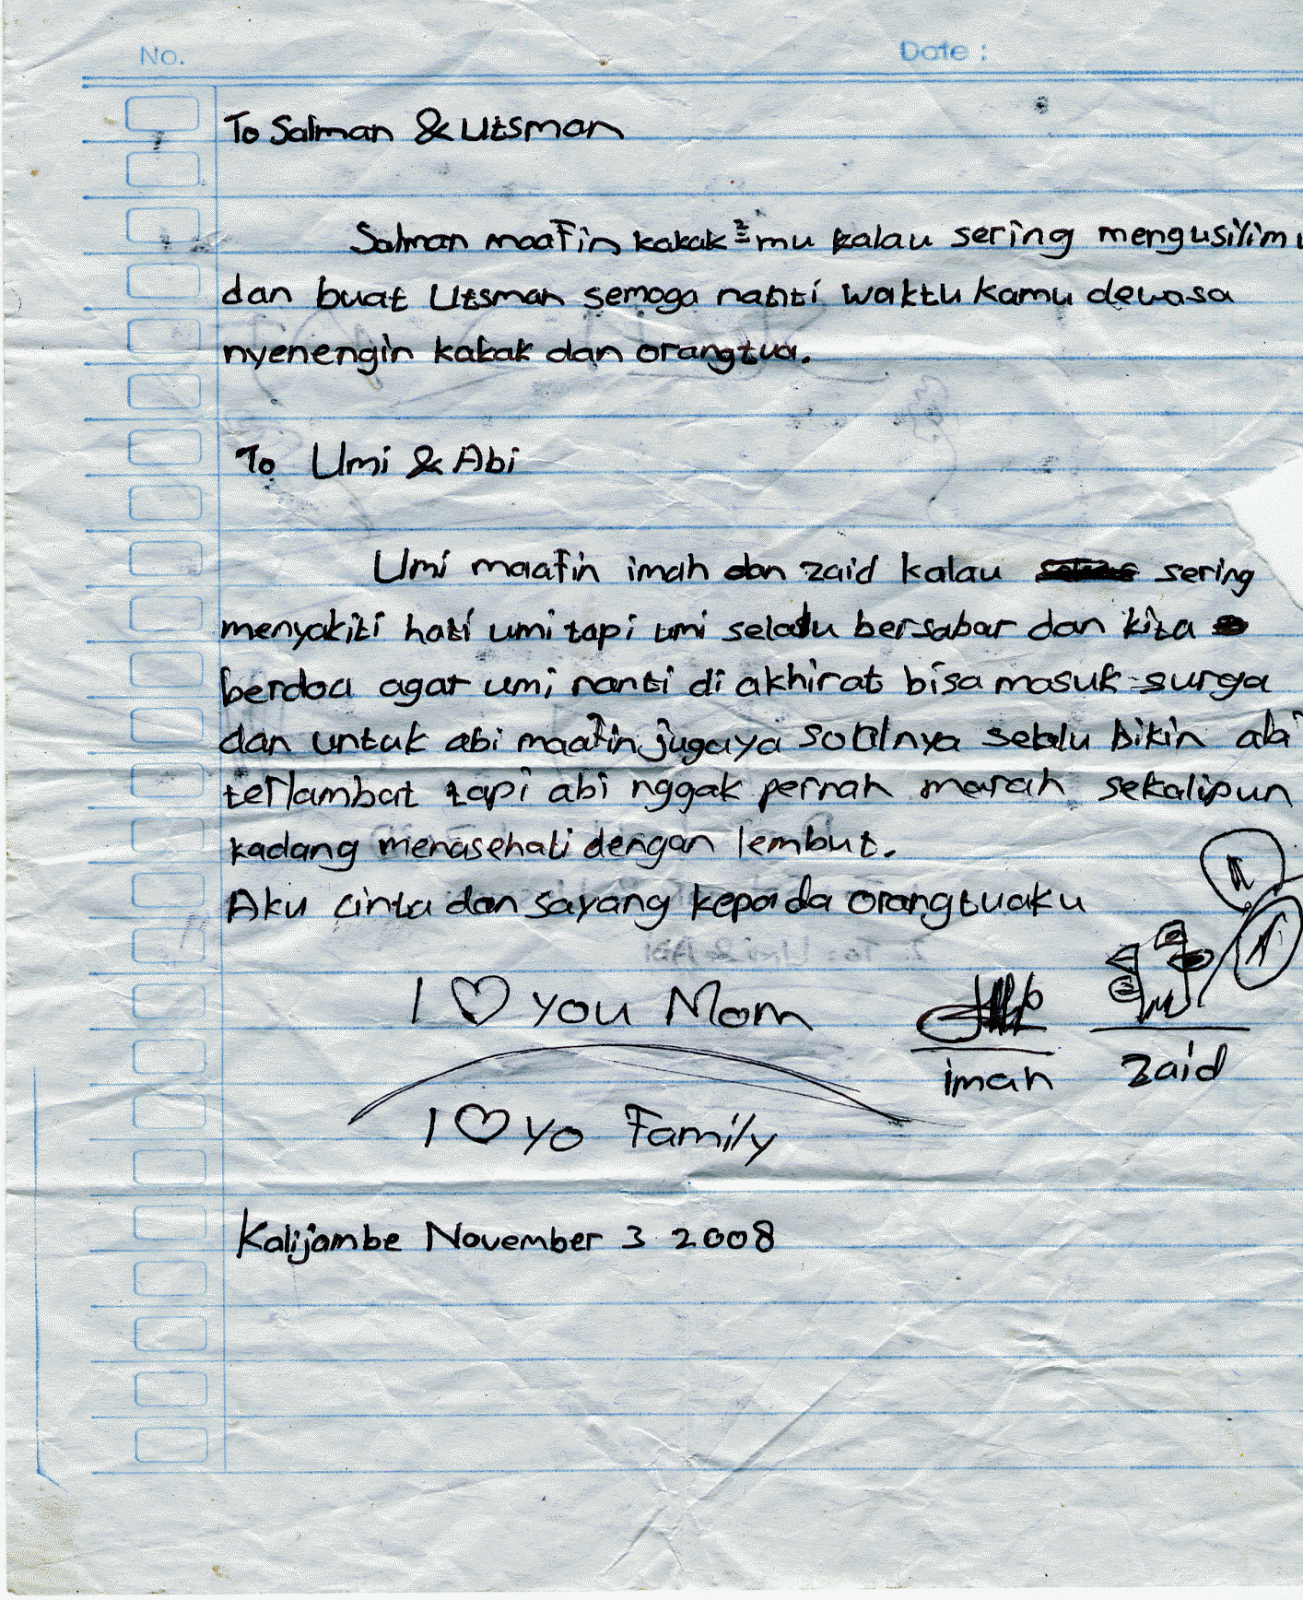 No. Date :
To Salman & Utsman
Salman maafin kakak²mu kalau sering mengusilimu
dan buat Utsman semoga nanti waktu kamu dewasa
nyenengin kakak dan orangtua.
To Umi & Abi
Umi maafin imah dan zaid kalau sering
menyakiti hati umi tapi umi selalu bersabar dan kita
berdoa agar umi nanti di akhirat bisa masuk surga
dan untuk abi maafin juga ya soalnya selalu bikin abi
terlambat tapi abi nggak pernah marah sekalipun
kadang menasehati dengan lembut.
Aku cinta dan sayang kepada orangtuaku
I ♡ you Mom
imah zaid
I ♡ yo Family
Kalijambe November 3 2008